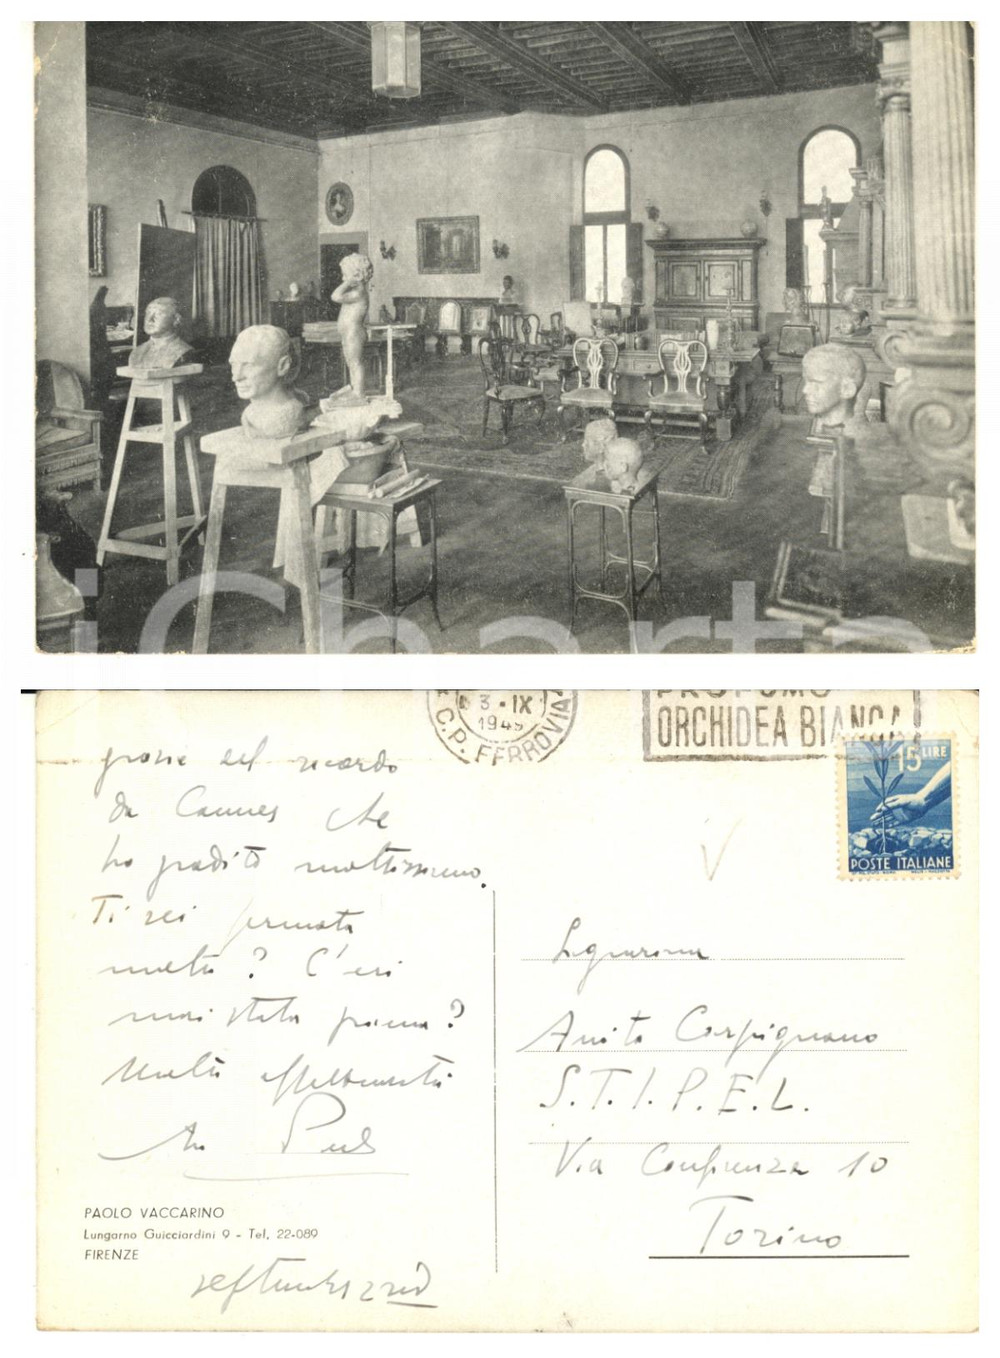 iCharta
3 · IX
1949
C.P. FERROVIA
PROFUMO
ORCHIDEA BIANCA
15 LIRE
POSTE ITALIANE
grazie del ricordo
da Cannes che
ho gradito moltissimo.
Ti sei fermata
molto? C'eri
mai stata prima?
Molto affettuosità
PAOLO VACCARINO
Lungarno Guicciardini 9 - Tel. 22-089
FIRENZE
Signorina
Anita Carpignano
S.T.I.P.E.L.
Via Confienza 10
Torino